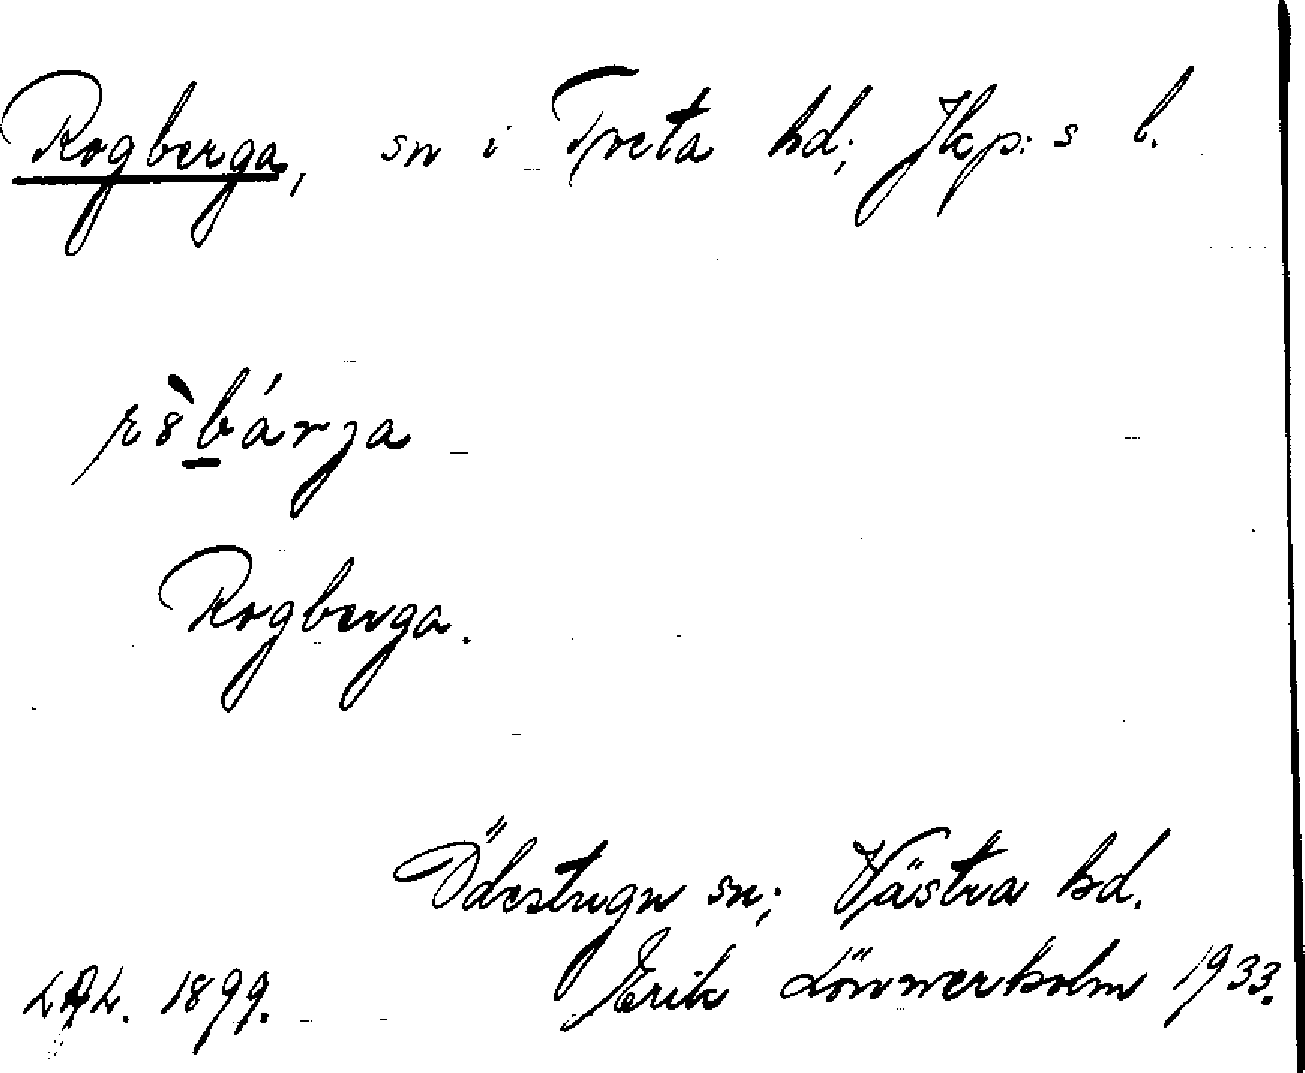 Rogberga, sn i Tveta hd; Jkp:s l.
Rogberga.
Ödestugu sn; Västra hd.
Erik Lönnerholm 1933.
1899.